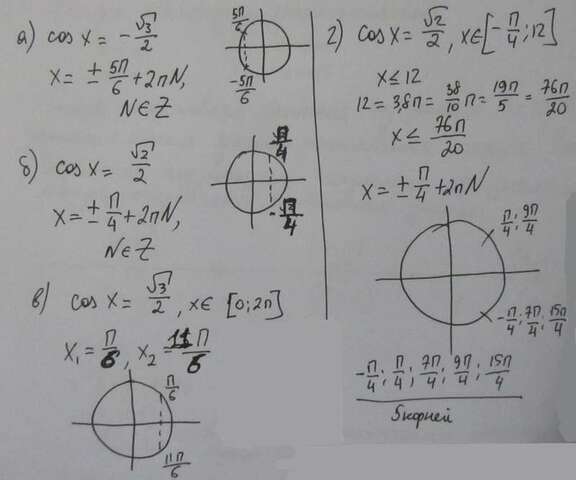 а) cos x = -√3/2
x = ± 5π/6 + 2πN,
N∈Z
5π/6
-5π/6
б) cos x = √2/2
x = ± π/4 + 2πN,
N∈Z
√2/4
-√2/4
в) cos x = √3/2, x∈ [0; 2π]
x₁ = π/6, x₂ = 11π/6
π/6
11π/6
г) cos x = √2/2, x∈[-π/4; 12]
x ≤ 12
12 = 3,8π = 38/10 π = 19π/5 = 76π/20
x ≤ 76π/20
x = ± π/4 + 2πN
π/4; 9π/4
-π/4; 7π/4; 15π/4
-π/4; π/4; 7π/4; 9π/4; 15π/4
5 корней